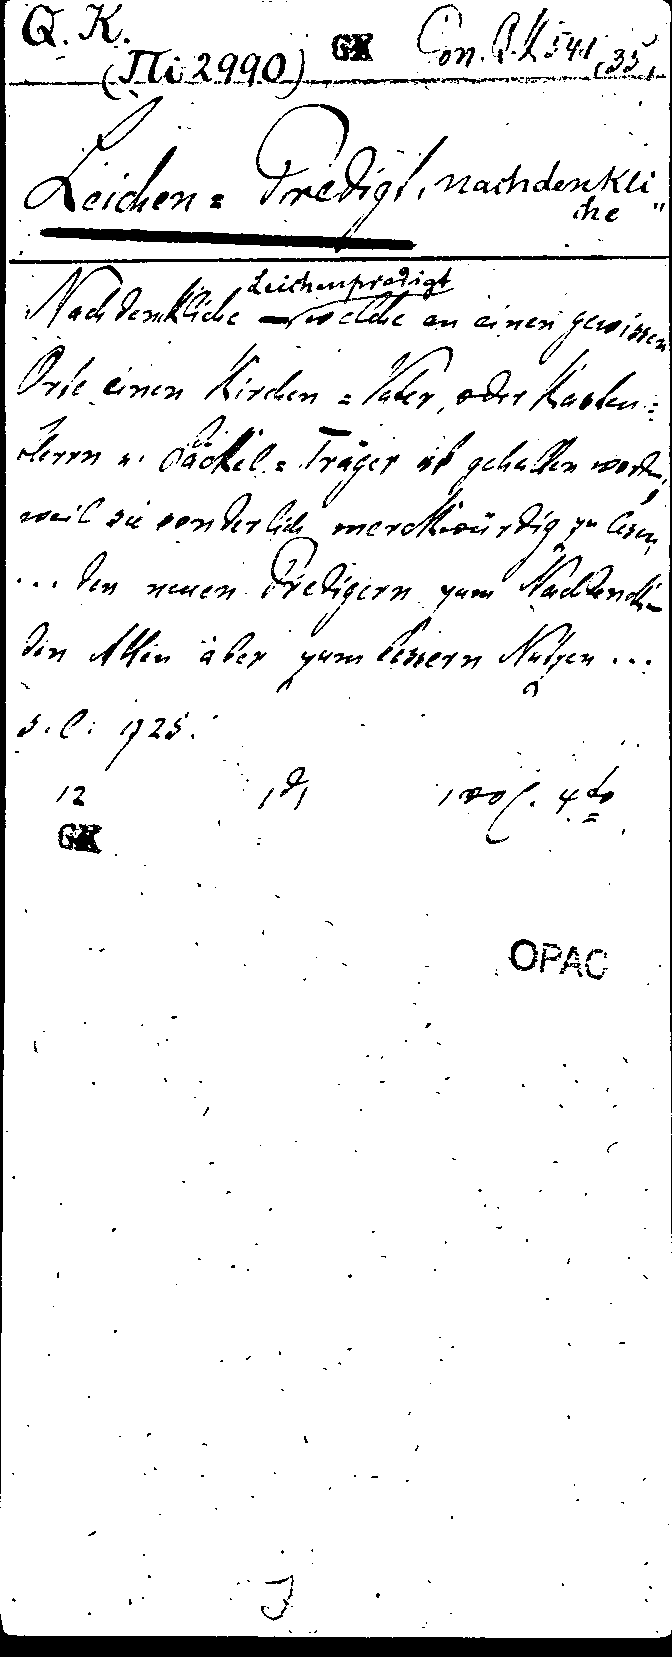 Q. K.
(Mi 2990) GK Con. Q. K 541,35,
Leichen = Predigt, nachdenkli
che "
Leichenpredigt
Nachdenkliche welche an einen gewissen
Orte einen Kirchen = Vater, oder Kasten =
Herrn u. Säckel = Träger ist gehalten worden,
weil sie sonderlich merckwürdig zu lesen,
... den neuen Predigern zum Nachdenck-
den Alten aber zum bessern Nutzen ...
s. l. 1725.
12 4to
GK
OPAC